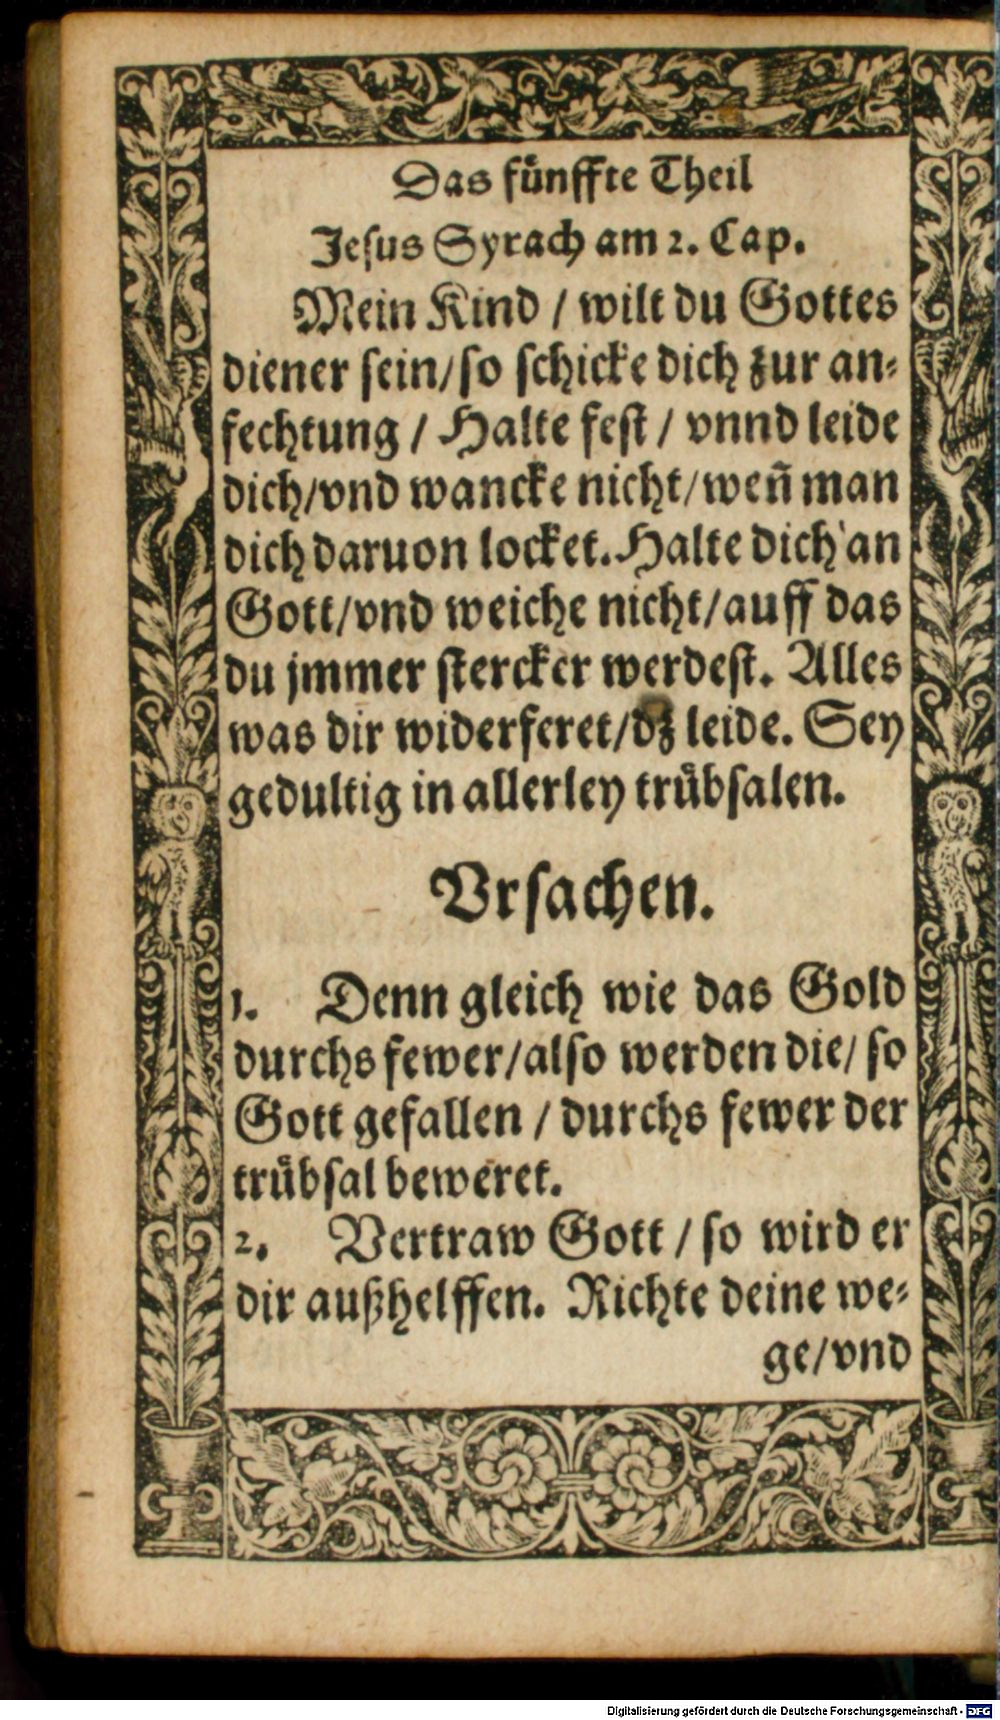 Das fuͤnffte Theil
Jesus Syrach am 2. Cap.
Mein Kind / wilt du Gottes
diener sein/so schicke dich zur an⸗
fechtung / Halte fest / vnnd leide
dich/vnd wancke nicht/weñ man
dich daruon locket. Halte dich an
Gott/vnd weiche nicht/auff das
du jmmer stercker werdest. Alles
was dir widerferet/dz leide. Sey
gedultig in allerley truͤbsalen.
Vrsachen.
1. Denn gleich wie das Gold
durchs fewer/also werden die/ so
Gott gefallen / durchs fewer der
truͤbsal beweret.
2. Vertraw Gott / so wird er
dir außhelffen. Richte deine we⸗
ge/vnd
Digitalisierung gefördert durch die Deutsche Forschungsgemeinschaft - DFG